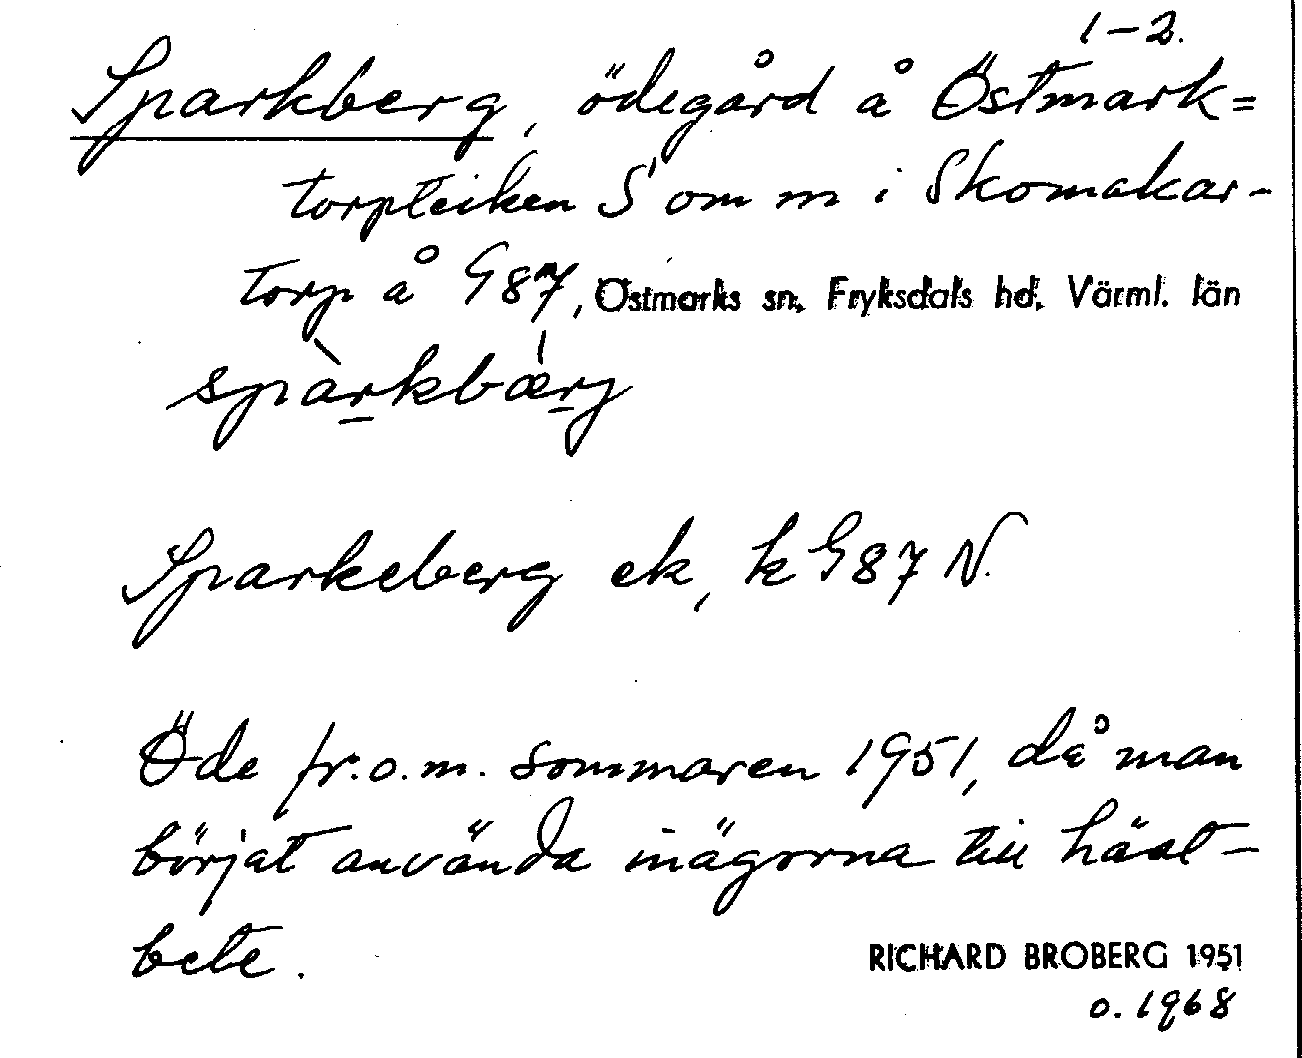 1–2.
Sparkberg, ödegård å Östmark=
torpteiken S om m i Skomakar-
torp å G 87, Östmarks sn. Fryksdals hd. Värml. län
spàrkbǽrj
Sparkeberg ek, k G 87 N.
Öde fr.o.m. sommaren 1951, då man
börjat använda inägorna till häst-
bete.
RICHARD BROBERG 1951
o. 1968